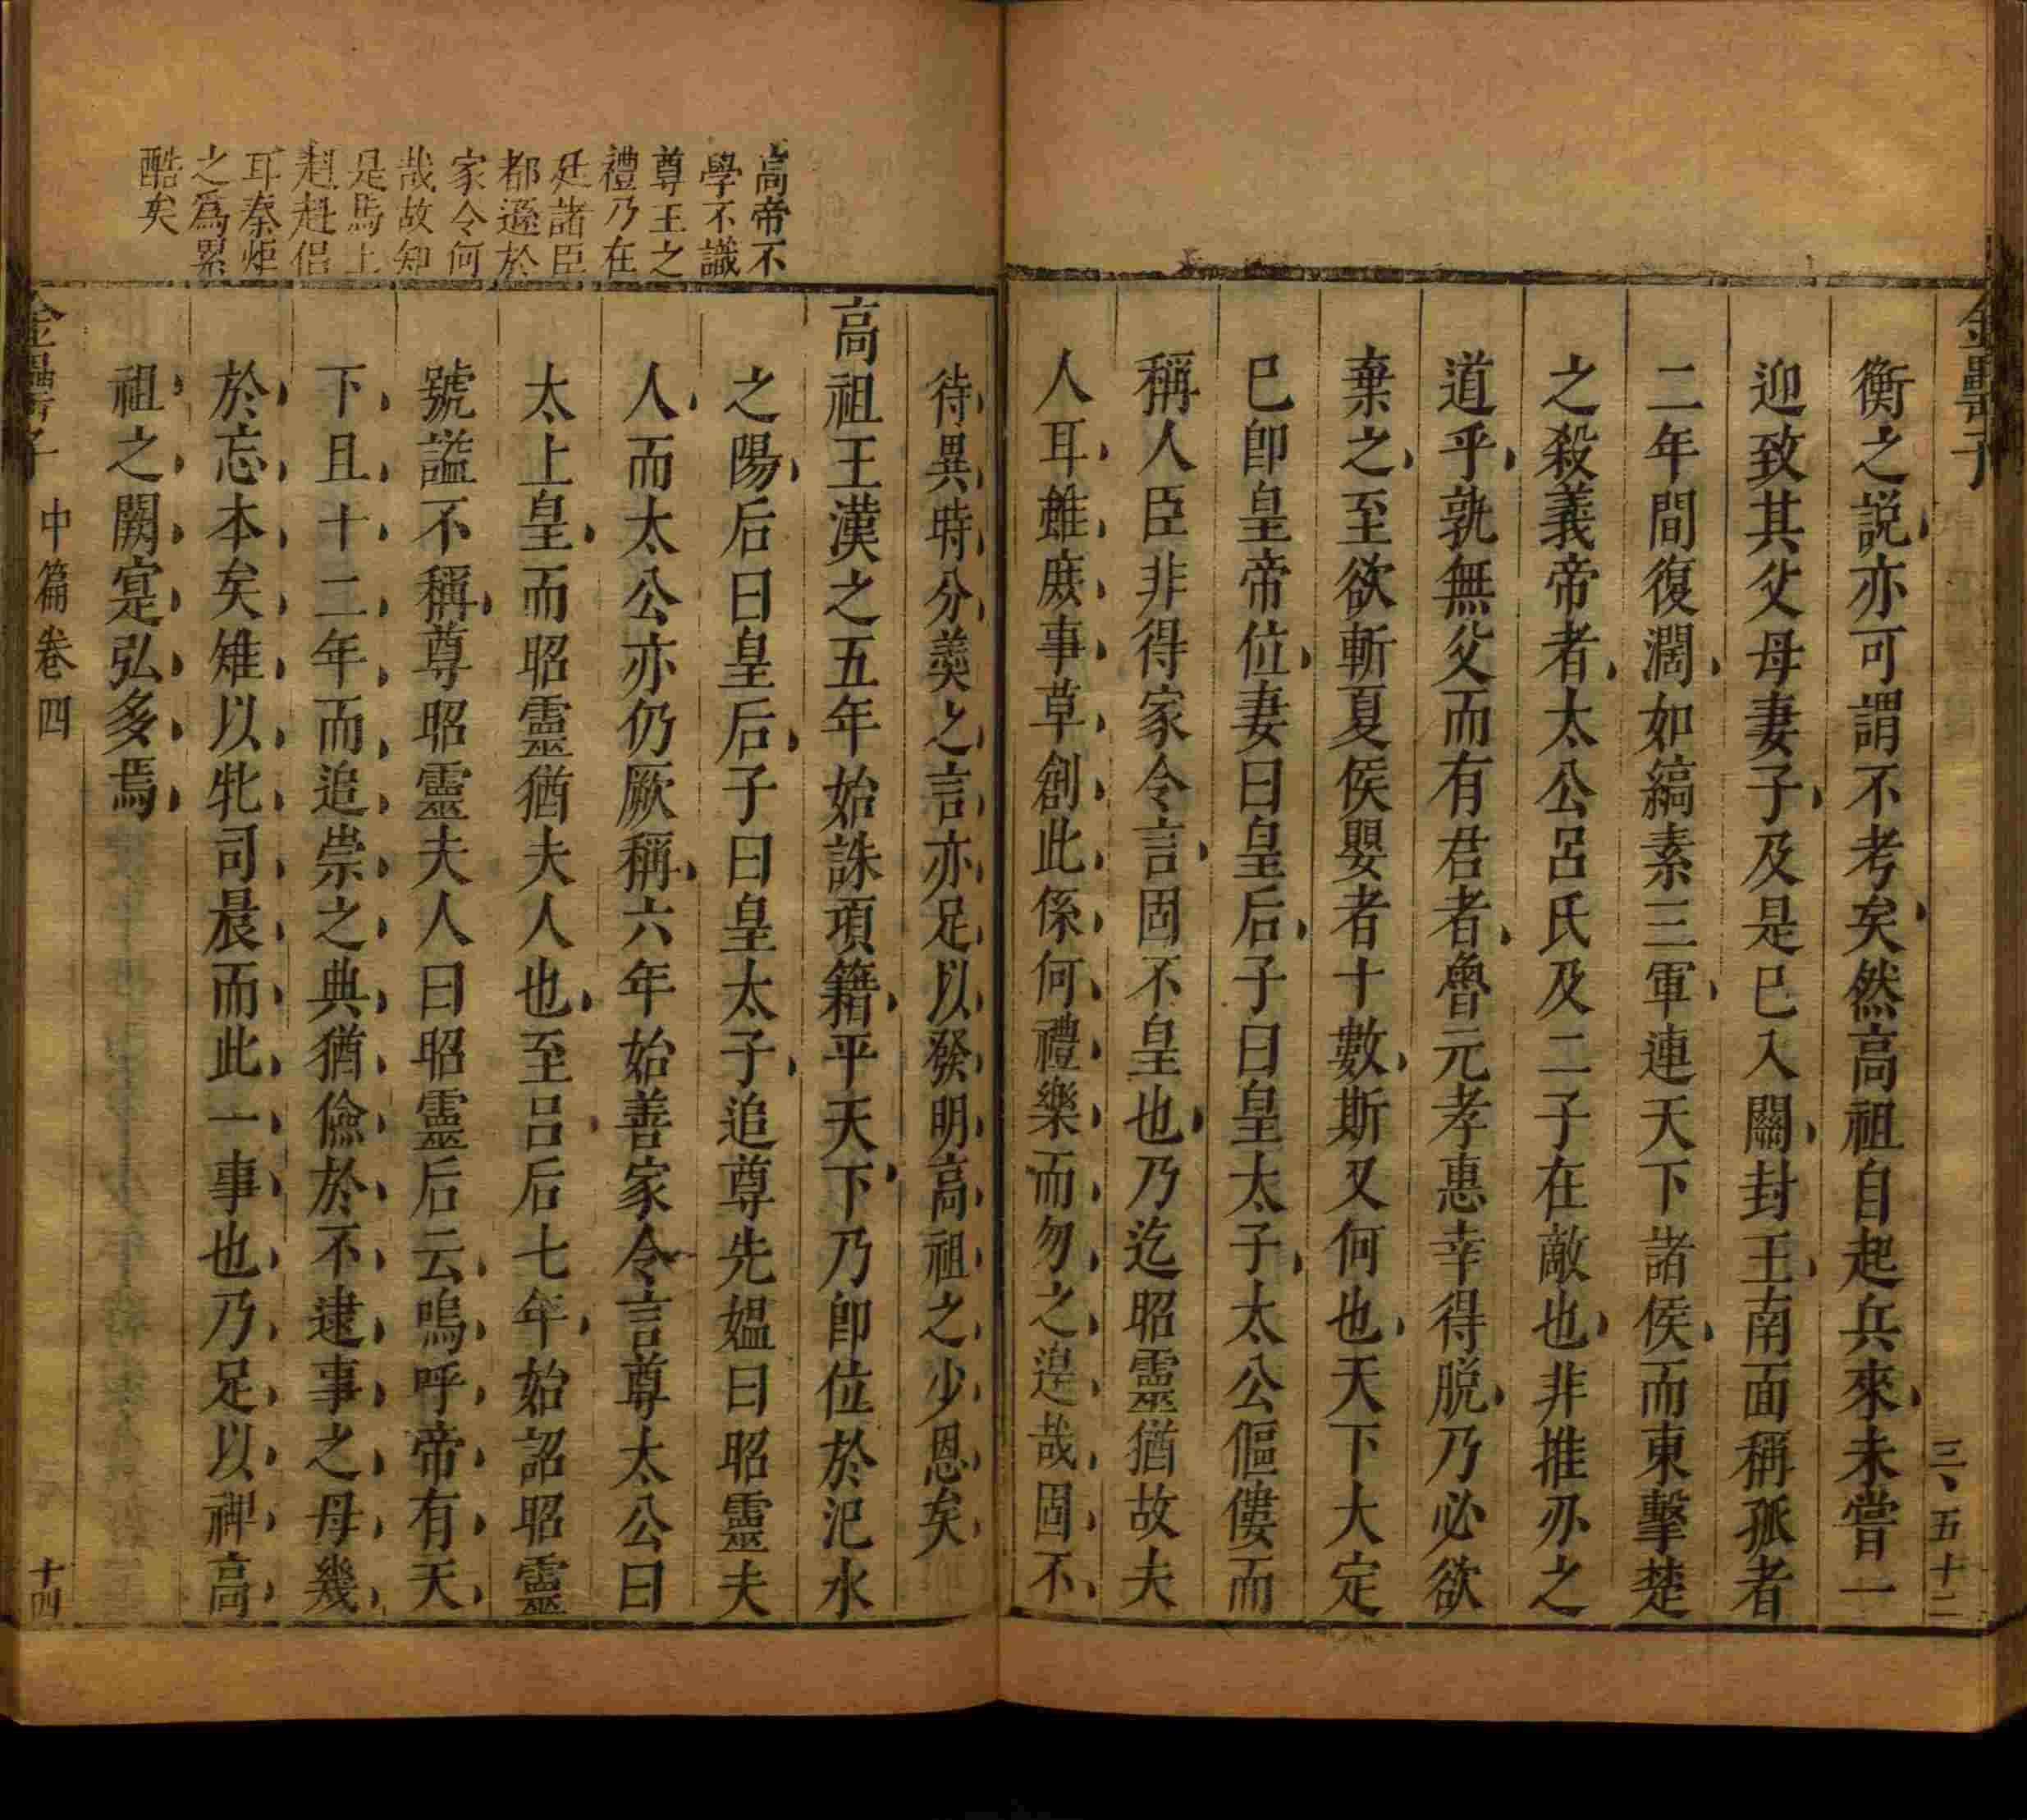 衡之說亦可謂不考矣然高祖自起兵來未嘗一
迎致其父母妻子及是已入關封王南面稱孤者
二年間復濶如縞素三軍連天下諸侯而東擊楚
之殺義帝者太公呂氏及二子在敵也非推刃之
道乎孰無父而有君者魯元孝惠幸得脱乃必欲
棄之至欲斬夏侯嬰者十數斯又何也天下大定
已卽皇帝位妻曰皇后子曰皇太子太公傴僂而
稱人臣非得家令言固不皇也乃迄昭靈猶故夫
人耳雖庶事草創此係何禮樂而勿之遑哉固不
待異時分羮之言亦足以發明高祖之少恩矣
高祖王漢之五年始誅項籍平天下乃卽位於汜水
之陽后曰皇后子曰皇太子追尊先媼曰昭靈夫
人而太公亦仍厥稱六年始善家令言尊太公曰
太上皇而昭靈猶夫人也至呂后七年始詔昭靈
號謚不稱尊昭靈夫人曰昭靈后云嗚呼帝有天
下且十二年而追崇之典猶儉於不逮事之母幾
於忘本矣雉以牝司晨而此一事也乃足以裨高
祖之闕寔弘多焉
高帝不
學不識
尊王之
禮乃在
廷諸臣
都遜於
家令何
哉故知
是馬上
赳赳侣
耳秦炬
之爲累
酷矣
中篇卷四
十四
三、五十二